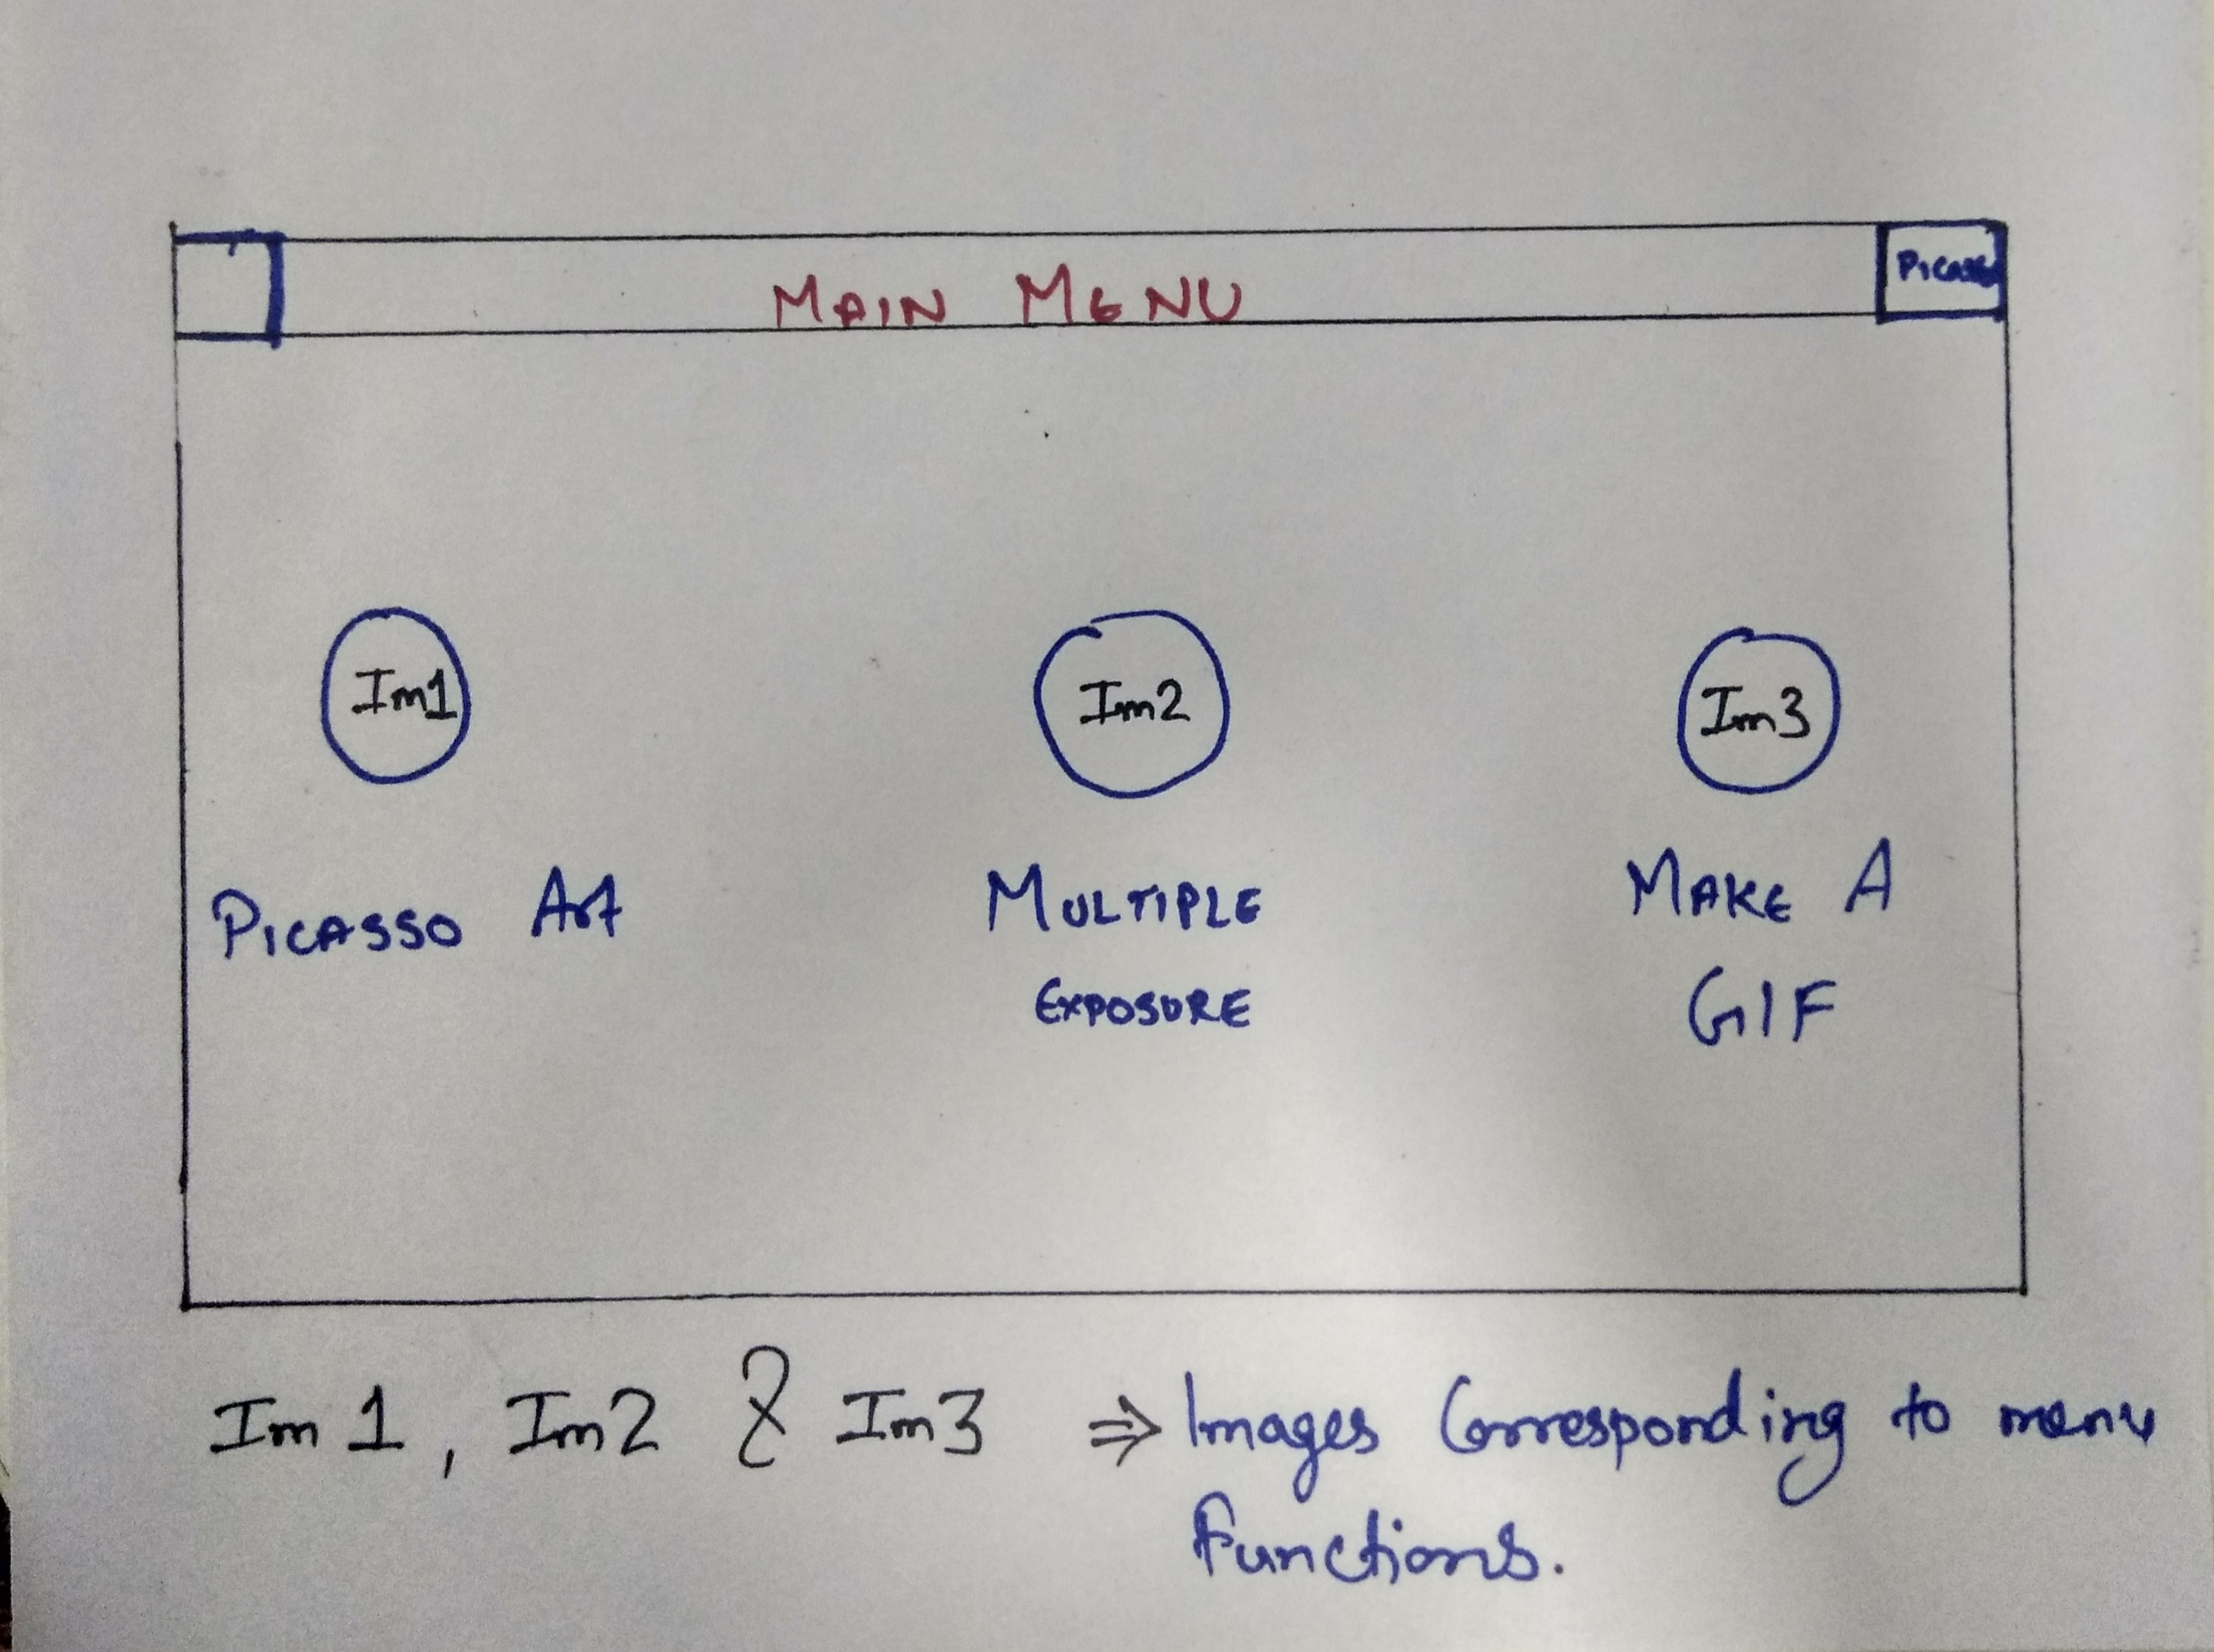 MAIN MENU
Picasso
Im1
Im2
Im3
PICASSO Art
MULTIPLE
EXPOSURE
MAKE A
GIF
Im 1, Im2 & Im3 ⇒ Images Corresponding to menu
functions.